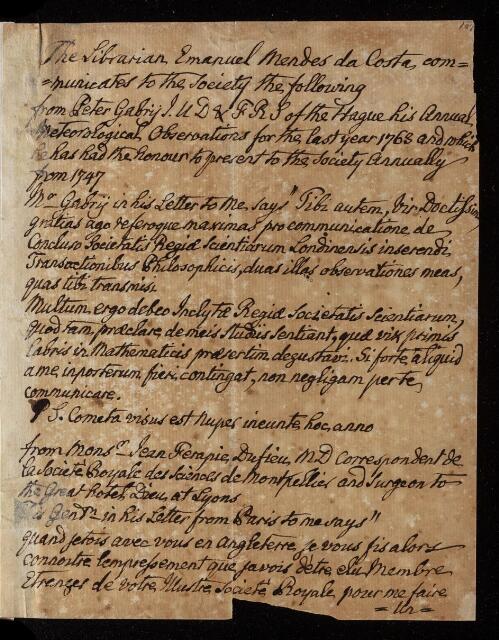 The Librarian Emanuel Mendes da Costa, com=
=municates to the Society the following
from Peter Gabry J.U.D & F R S of the Hague his Annual
Meteorological Observations for the last year 1768 and which
he has had the honour to present to the Society Annually
from 1747
Mr Gabry in his Letter to me says " Tibi autem, Vir Doctissime
gratias ago referoque maximas pro communicatione de
Concluso Societatis Regiæ Scientiarum Londinensis inserendi
Transactionibus Philosophicis, duas illas observationes meas,
quas tibi transmisi.
Multum ergo debeo Inclytæ Regiæ Societatis Scientiarum,
quod tam, præclare, de meis Studiis sentiant, quæ vix primis
labris in Mathematicis præsertim degustavi. Si forte aliquid
a me, in posterum fieri contingat, non negligam per te,
communicare.
P S. Cometa visus est nuper ineunte hoc, anno
from Monsr Jean Ferapie, Dufieu, MD Correspondent de
la Societé Royale des Sciences de Montpellier and Surgeon to
the Great hotel, Dieu, at Lyons
This Gentn in his Letter from Paris to me says "
quand jetois avec vous en Angleterre je vous fis alors
connoitre lempressement que javois dêtre elu Membre
Etrenger de votre Illustre Societé Royale pour me faire
= un =